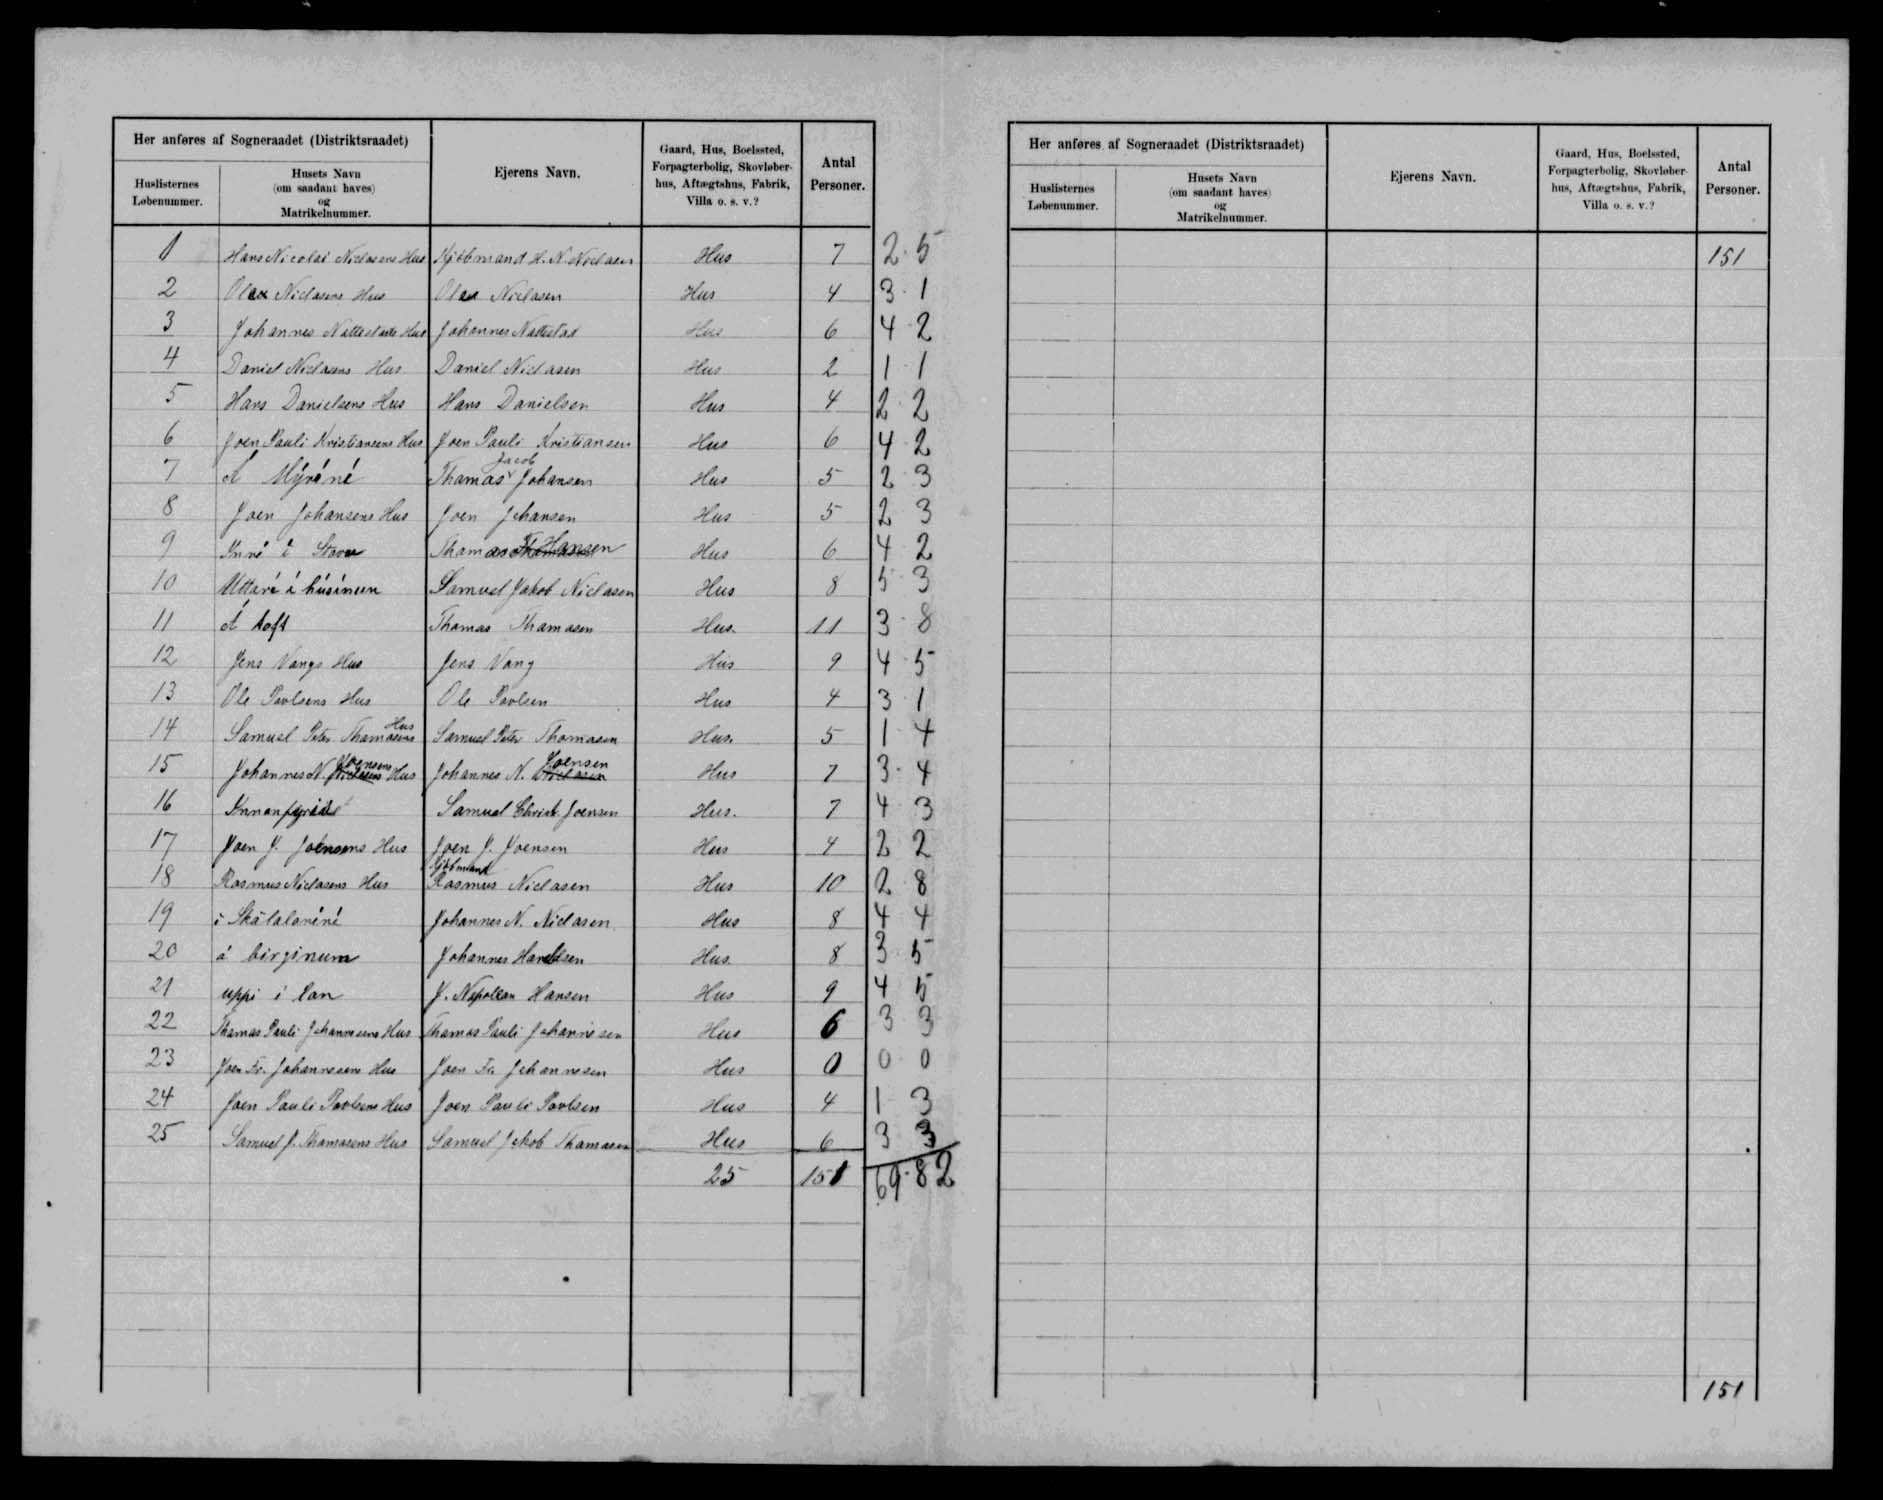 Her anføres af Sogneraadet (Distriktsraadet) | Ejerens Navn. | Gaard, Hus, Boelssted, Forpagterbolig, Skovløberhus, Aftægtshus, Fabrik, Villa o. s. v.? | Antal Personer.
Huslisternes Løbenummer. | Husets Navn (om saadant haves) og Matrikelnummer.
1 Hans Nicolai Niclasens Hus Kjøbmand H. N. Niclasen Hus 7 2 · 5
2 Niclasens Hus Niclasen Hus 4 3 · 1
3 Johannes Nattestads Hus Johannes Nattestad Hus 6 4 · 2
4 Daniel Niclasens Hus Daniel Niclasen Hus 2 1 · 1
5 Hans Danielsens Hus Hans Danielsen Hus 4 2 · 2
6 Joen Pauli Kristiansens Hus Joen Pauli Kristiansen Hus 6 4 · 2
7 Á Mýrini Thomas Jacob Johansen Hus 5 2 3
8 Joen Johansens Hus Joen Johansen Hus 5 2 3
9 Inni í Stovu Thomas Hansen Hus 6 4 2
10 Uttari í húsinum Samuel Jakob Niclasen Hus 8 5 · 3
11 Á toft Thomas Thomasen Hus. 11 3 · 8
12 Jens Vangs Hus Jens Vang Hus 9 4 · 5
13 Ole Poulsens Hus Ole Poulsen Hus 4 3 · 1
14 Samuel Peter Thomasens Hus Samuel Peter Thomasen Hus. 5 1 · 4
15 Johannes N. Joensens Hus Johannes N. Joensen Hus 7 3 · 4
16 Samuel Christ. Joensen Hus. 7 4 3
17 Joen J. Joensens Hus Joen J. Joensen Hus 4 2 2
18 Rasmus Niclasens Hus Kjøbmand Rasmus Niclasen Hus 10 2 · 8
19 í Johannes N. Niclasen Hus 8 4 4
20 á birginum Johannes Hansen Hus. 8 3 · 5
21 uppi í lon J. Napoleon Hansen Hus 9 4 5
22 Thomas Pauli Johannesens Hus Thomas Pauli Johannesen Hus 6 3 · 3
23 Joen Fr. Johannesens Hus Joen Fr. Johannesen Hus 0 0 · 0
24 Joen Pauli Poulsens Hus Joen Pauli Poulsen Hus 4 1 3
25 Samuel J. Thomasens Hus Samuel Jakob Thomasen Hus 6 3 3
25 151 69 · 82
Her anføres af Sogneraadet (Distriktsraadet) | Ejerens Navn. | Gaard, Hus, Boelssted, Forpagterbolig, Skovløberhus, Aftægtshus, Fabrik, Villa o. s. v.? | Antal Personer.
Huslisternes Løbenummer. | Husets Navn (om saadant haves) og Matrikelnummer.
151
151